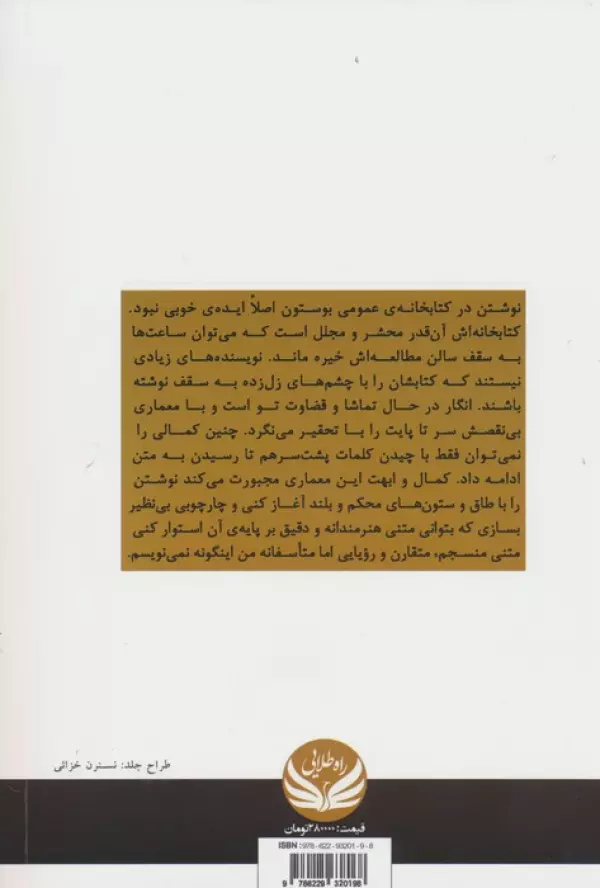 نوشتن در کتابخانه‌ی عمومی بوستون اصلاً ایده‌ی خوبی نبود.
کتابخانه‌اش آن‌قدر محشر و مجلل است که می‌توان ساعت‌ها
به سقف سالن مطالعه‌اش خیره ماند. نویسنده‌های زیادی
نیستند که کتابشان را با چشم‌های زل‌زده به سقف نوشته
باشند. انگار در حال تماشا و قضاوت تو است و با معماری
بی‌نقصش سر تا پایت را با تحقیر می‌نگرد. چنین کمالی را
نمی‌توان فقط با چیدن کلمات پشت‌سرهم تا رسیدن به متن
ادامه داد. کمال و ابهت این معماری مجبورت می‌کند نوشتن
را با طاق و ستون‌های محکم و بلند آغاز کنی و چارچوبی بی‌نظیر
بسازی که بتوانی متنی هنرمندانه و دقیق بر پایه‌ی آن استوار کنی
متنی منسجم، متقارن و رؤیایی اما متأسفانه من اینگونه نمی‌نویسم.
راه طلایی
طراح جلد: نسترن خزائی
قیمت: ۲۸۰۰۰۰تومان
ISBN :978-622-93201-9-8
9 786229 320198